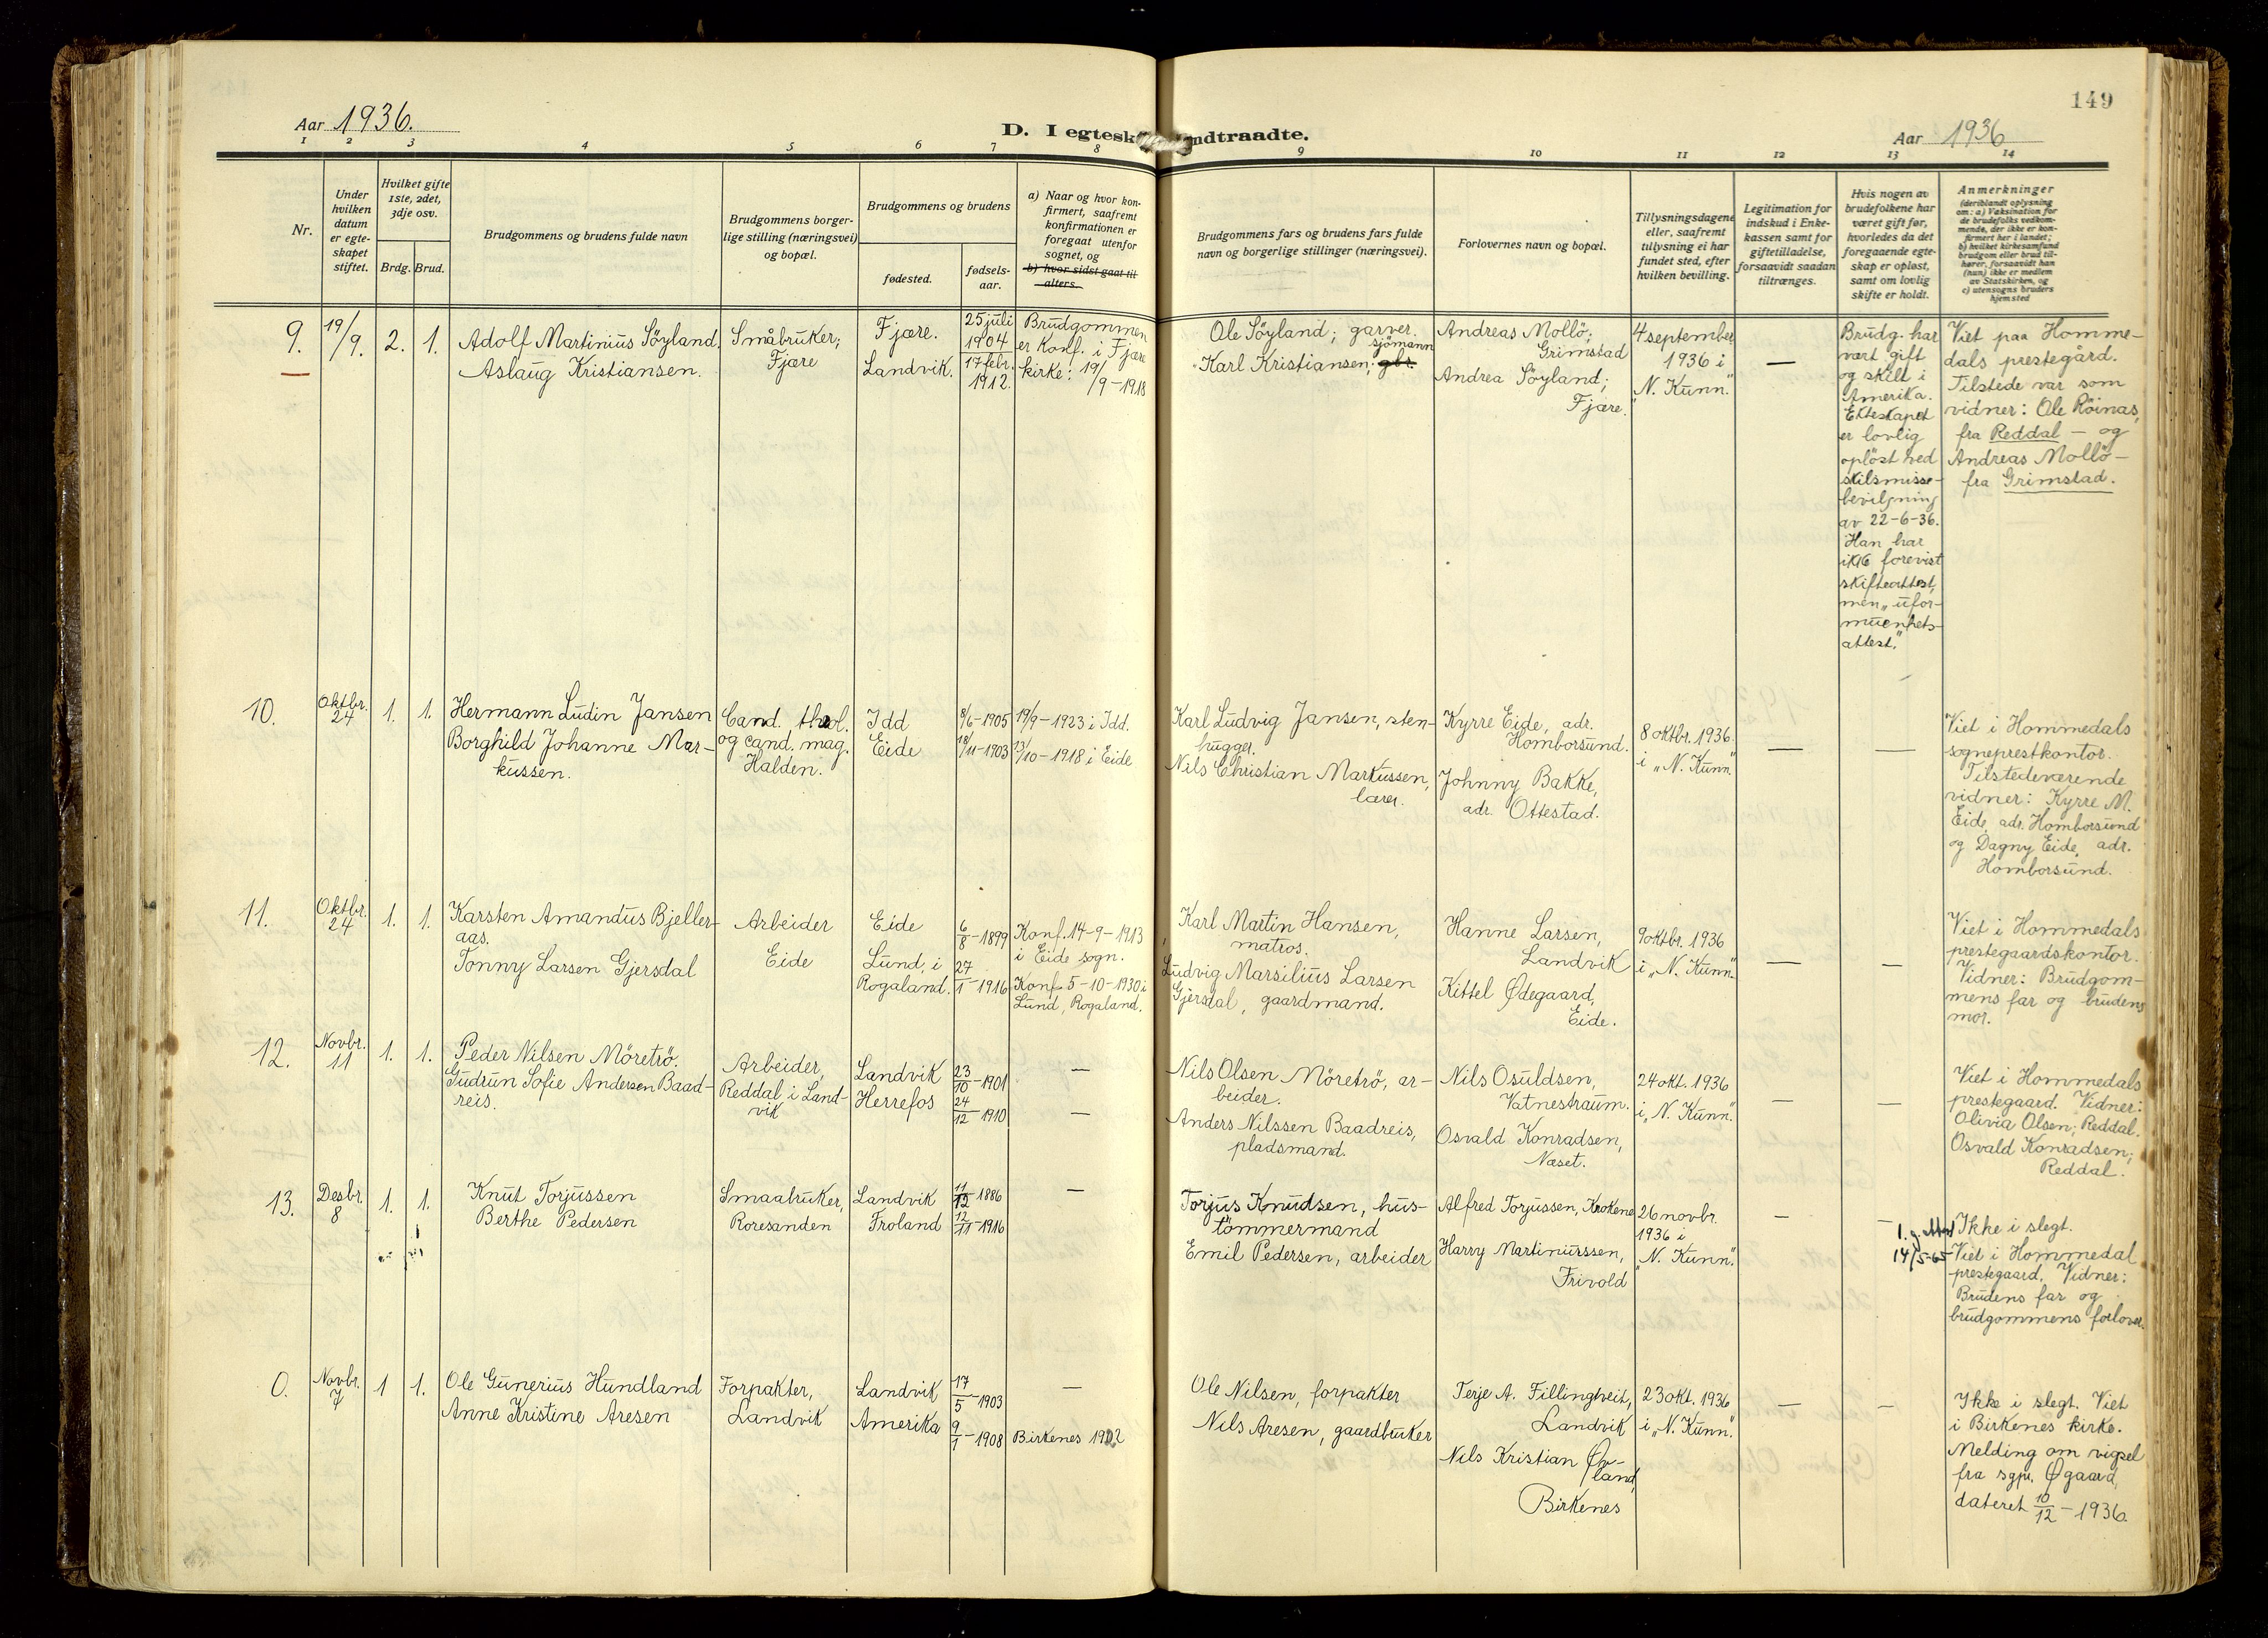 149
Aar 1936.
D. I egtesk
ndtraadte.
Aar 1936
1 2 3 4 5 6 7 8 9 10 11 12 13 14
Nr.
Under
hvilken
datum
er egte-
skapet
stiftet.
Hvilket gifte
1ste, 2det,
3dje osv.
Brdg. Brud.
Brudgommens og brudens fulde navn
Brudgommens borger-
lige stilling (næringsvei)
og bopæl.
Brudgommens og brudens
fødested.
fødsels-
aar.
a) Naar og hvor kon-
firmert, saafremt
konfirmationen er
foregaat utenfor
sognet, og
b) hvor sidst gaat til
alters.
Brudgommens fars og brudens fars fulde
navn og borgerlige stillinger (næringsvei).
Forlovernes navn og bopæl.
Tillysningsdagene
eller, saafremt
tillysning ei har
fundet sted, efter
hvilken bevilling.
Legitimation for
indskud i Enke-
kassen samt for
giftetilladelse,
forsaavidt saadan
tiltrænges.
Hvis nogen av
brudefolkene har
været gift før,
hvorledes da det
foregaaende egte-
skap er opløst,
samt om lovlig
skifte er holdt.
Anmerkninger
(deriblandt oplysning
om: a) Vaksination for
de brudefolks vedkom-
mende, der ikke er kon-
firmert her i landet;
b) hvilket kirkesamfund
brudgom eller brud til-
hører, forsaavidt han
(hun) ikke er medlem
av Statskirken, og
c) utensogns bruders
hjemsted
9.
19/9.
2. 1.
Adolf Martinius Söyland.
Aslaug Kristiansen.
Småbruker;
Fjære
Fjære.
Landvik.
25 juli
1904
17 febr.
1912.
Brudgommen
er konf. i Fjære
kirke: 19/
/9-1918
Ole Söyland; garver.
sjömann
Karl Kristiansen; gbr.
Andreas Mollö;
Grimstad
Andrea Söyland;
Fjære.
4 september
1936 i
"N. Kunn."
—
Brudg. har
vært gift
og skilt i
Amerika.
Ekteskapet
er lovlig
oplöst ved
skilsmisse-
bevilgning
av 22-6-36.
Han har
ikke forevist
skifteattest,
men „ufor-
muenhets-
attest."
Viet paa Homme-
dals prestegård.
Tilstede var som
vidner: Ole Röinas,
fra Reddal — og
Andreas Mollö —
fra Grimstad.
10.
Oktbr.
24
1. 1.
Hermann Ludin Jansen
Borghild Johanne Mar-
kussen.
Cand. theol.
og cand. mag.
Halden.
Idd
Eide
8/6-1905
18/11-1903
19/9-1923 i Idd.
13/10-1918 i Eide
Karl Ludvig Jansen, sten-
hugger.
Nils Christian Markussen,
lærer.
Kyrre Eide, adr.
Homborsund.
Johnny Bakke,
adr. Ottestad.
8 oktbr. 1936.
i „N. Kunn."
— —
Viet i Hommedals
sogneprestkontor.
Tilstedeværende
vidner: Kyrre M.
Eide, adr. Homborsund
og Dagny Eide, adr.
Homborsund.
11.
Oktbr.
24
1. 1.
Karsten Amandus Bjeller-
aas.
Tonny Larsen Gjersdal
Arbeider
Eide
Eide
Lund, i
Rogaland.
6/8-1899
27/1-1916
Konf. 14-9-1913
i Eide sogn.
Konf. 5-10-1930 i
Lund, Rogaland.
Karl Martin Hansen,
matros.
Ludvig Marsilius Larsen
Gjersdal, gaardmand.
Hanne Larsen,
Landvik
Kittel Ødegaard,
Eide.
9 oktbr. 1936
i „N. Kunn."
— —
Viet i Hommedals
prestegaardskontor.
Vidner: Brudgom-
mens far og brudens
mor.
12.
Novbr.
11
1. 1.
Peder Nilsen Möretrö.
Gudrun Sofie Andersen Baad-
reis.
Arbeider,
Reddal, i Land-
vik
Landvik
Herrefos
23/10-1901
24/12 1910
—
—
Nils Olsen Möretrö, ar-
beider.
Anders Nilssen Baadreis,
pladsmand.
Nils Osuldsen,
Vatnestraum.
Osvald Konradsen,
Næset.
24 okt. 1936
i „N. Kunn."
— —
Viet i Hommedals
prestegaard. Vidner:
Olivia Olsen, Reddal.
Osvald Konradsen;
Reddal.
13.
Desbr.
8
1. 1.
Knut Torjussen
Berthe Pedersen
Smaabruker,
Roresanden
Landvik
Froland
11/12-1886
12/11-1916
—
Torjus Knudsen, hus-
tömmermand
Emil Pedersen, arbeider
Alfred Torjussen, Krokene
Harry Martinussen,
Frivold
26 novbr.
1936 i
"N. Kunn."
— —
14/5-65
Ikke i slegt.
Viet i Hommedal
prestegaard. Vidner:
Brudens far og
brudgommens forlover.
0.
Novbr.
7
1 1.
Ole Gunerius Hundland
Anne Kristine Aresen
Forpakter,
Landvik
Landvik
Amerika
17/5-1903
9/1-1908
—
Birkenes 1922
Ole Nilsen, forpakter
Nils Aresen, gaardbruker
Terje A. Fillingtveit,
Landvik
Nils Kristian Øv-
land,
Birkenes
23 okt. 1936
i „N. Kunn."
— —
Ikke i slegt. Viet
i Birkenes kirke.
Melding om vigsel
fra sgpr. Øgaard,
dateret 10/12-1936.